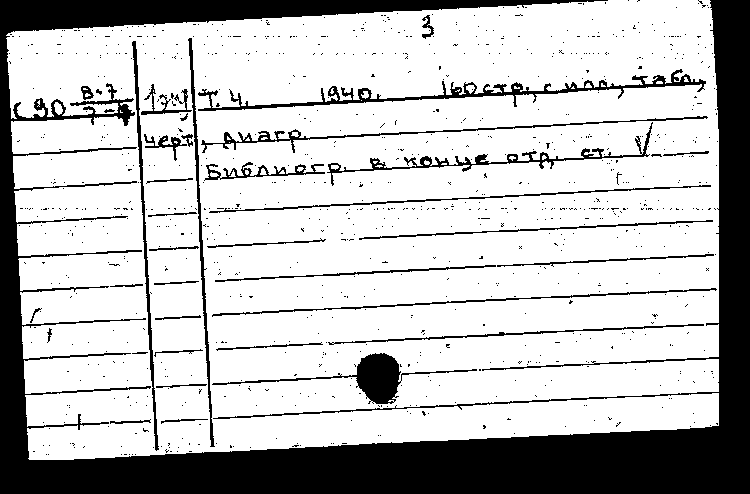 3
С 90 В-7 1экз Т. 4. 1940. 160 стр., с илл., табл.,
черт., диагр.
Библиогр. в конце отд. ст. √